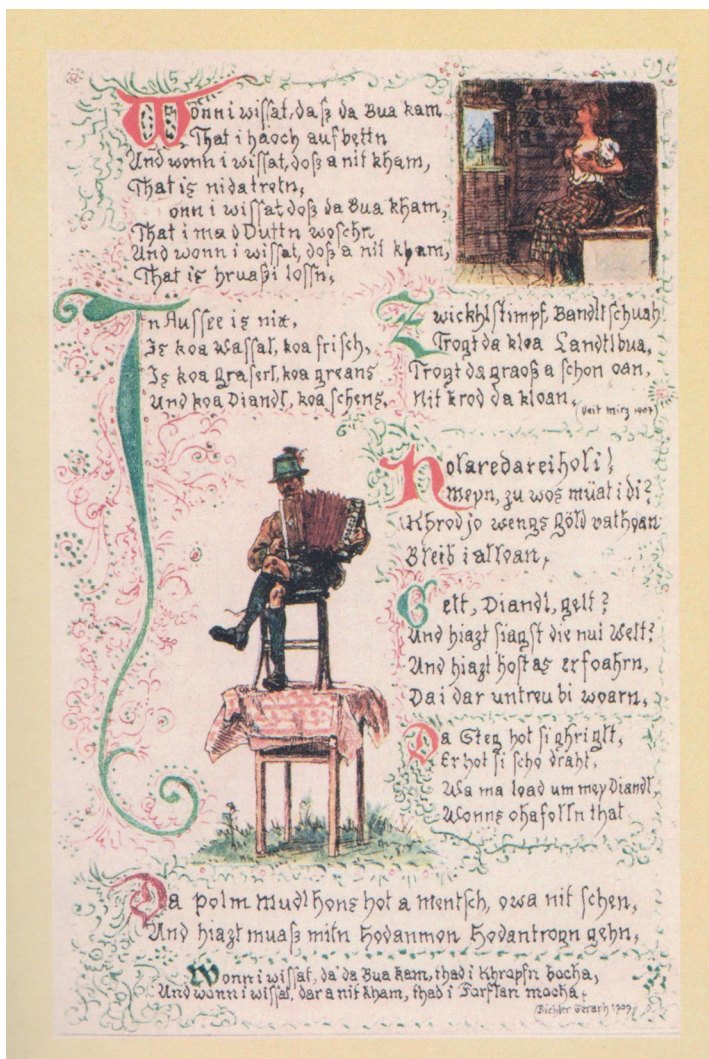 Wonn i wissat, daß da Bua kam
That i haoch aufbettn
Und wonn i wissat, doß a nit kham,
That is nidatretn,
onn i wissat doß da Bua kham,
That i ma d Duttn woschn
Und wonn i wissat, doß a nit kham,
That is hruaßi lossn,
In Aussee is nix,
Is koa Wassal, koa frisch,
Is koa Graserl, koa greans
Und koa Diandl, koa schens,
Zwickhlstimpf, Bandltschuah
Trogt da kloa Landtlbua,
Trogt da graoß a schon oan,
Nit krod da kloan,
(Veit Mirz 1907)
Holaredareiholi!
Meyn, zu wos müat i di?
Khrod jo wengs Göld vathoan
Bleib i alloan,
Gelt, Diandl, gelt?
Und hiazt siagst die nui Welt?
Und hiazt host as erfoahrn,
Da i dar untreu bi woarn,
Da Steg hot si ghriglt,
Er hot si scho draht,
Wa ma load um mey Diandl,
Wonns ohafolln that
Da Polm Mudl Hons hot a Mentsch, owa nit schen,
Und hiazt muaß mitn Hodanmon Hodantrogn gehn,
Wonn i wissat, da da Bua kam, thad i Khrapfn bocha,
Und wonn i wissat, dar a nit kham, thad i Farflan macha,
1909